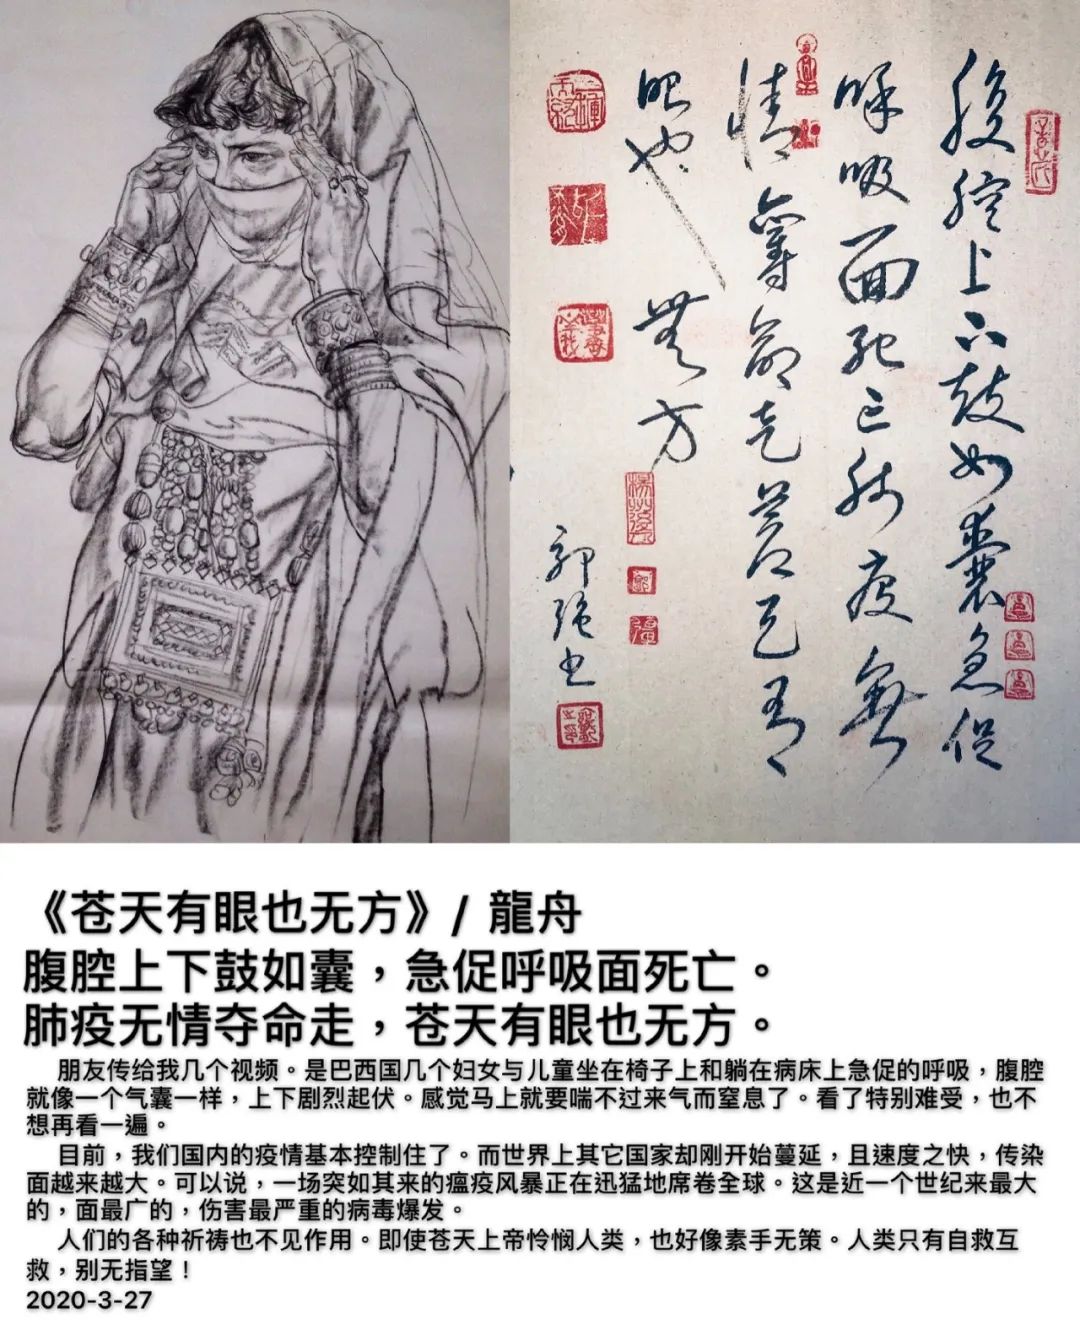 腹腔上下鼓如囊急促
呼吸面死亡肺疫無
情奪命走苍天有
眼也無方
郭強书
《苍天有眼也无方》/ 龍舟
腹腔上下鼓如囊，急促呼吸面死亡。
肺疫无情夺命走，苍天有眼也无方。
朋友传给我几个视频。是巴西国几个妇女与儿童坐在椅子上和躺在病床上急促的呼吸，腹腔
就像一个气囊一样，上下剧烈起伏。感觉马上就要喘不过来气而窒息了。看了特别难受，也不
想再看一遍。
目前，我们国内的疫情基本控制住了。而世界上其它国家却刚开始蔓延，且速度之快，传染
面越来越大。可以说，一场突如其来的瘟疫风暴正在迅猛地席卷全球。这是近一个世纪来最大
的，面最广的，伤害最严重的病毒爆发。
人们的各种祈祷也不见作用。即使苍天上帝怜悯人类，也好像素手无策。人类只有自救互
救，别无指望！
2020-3-27